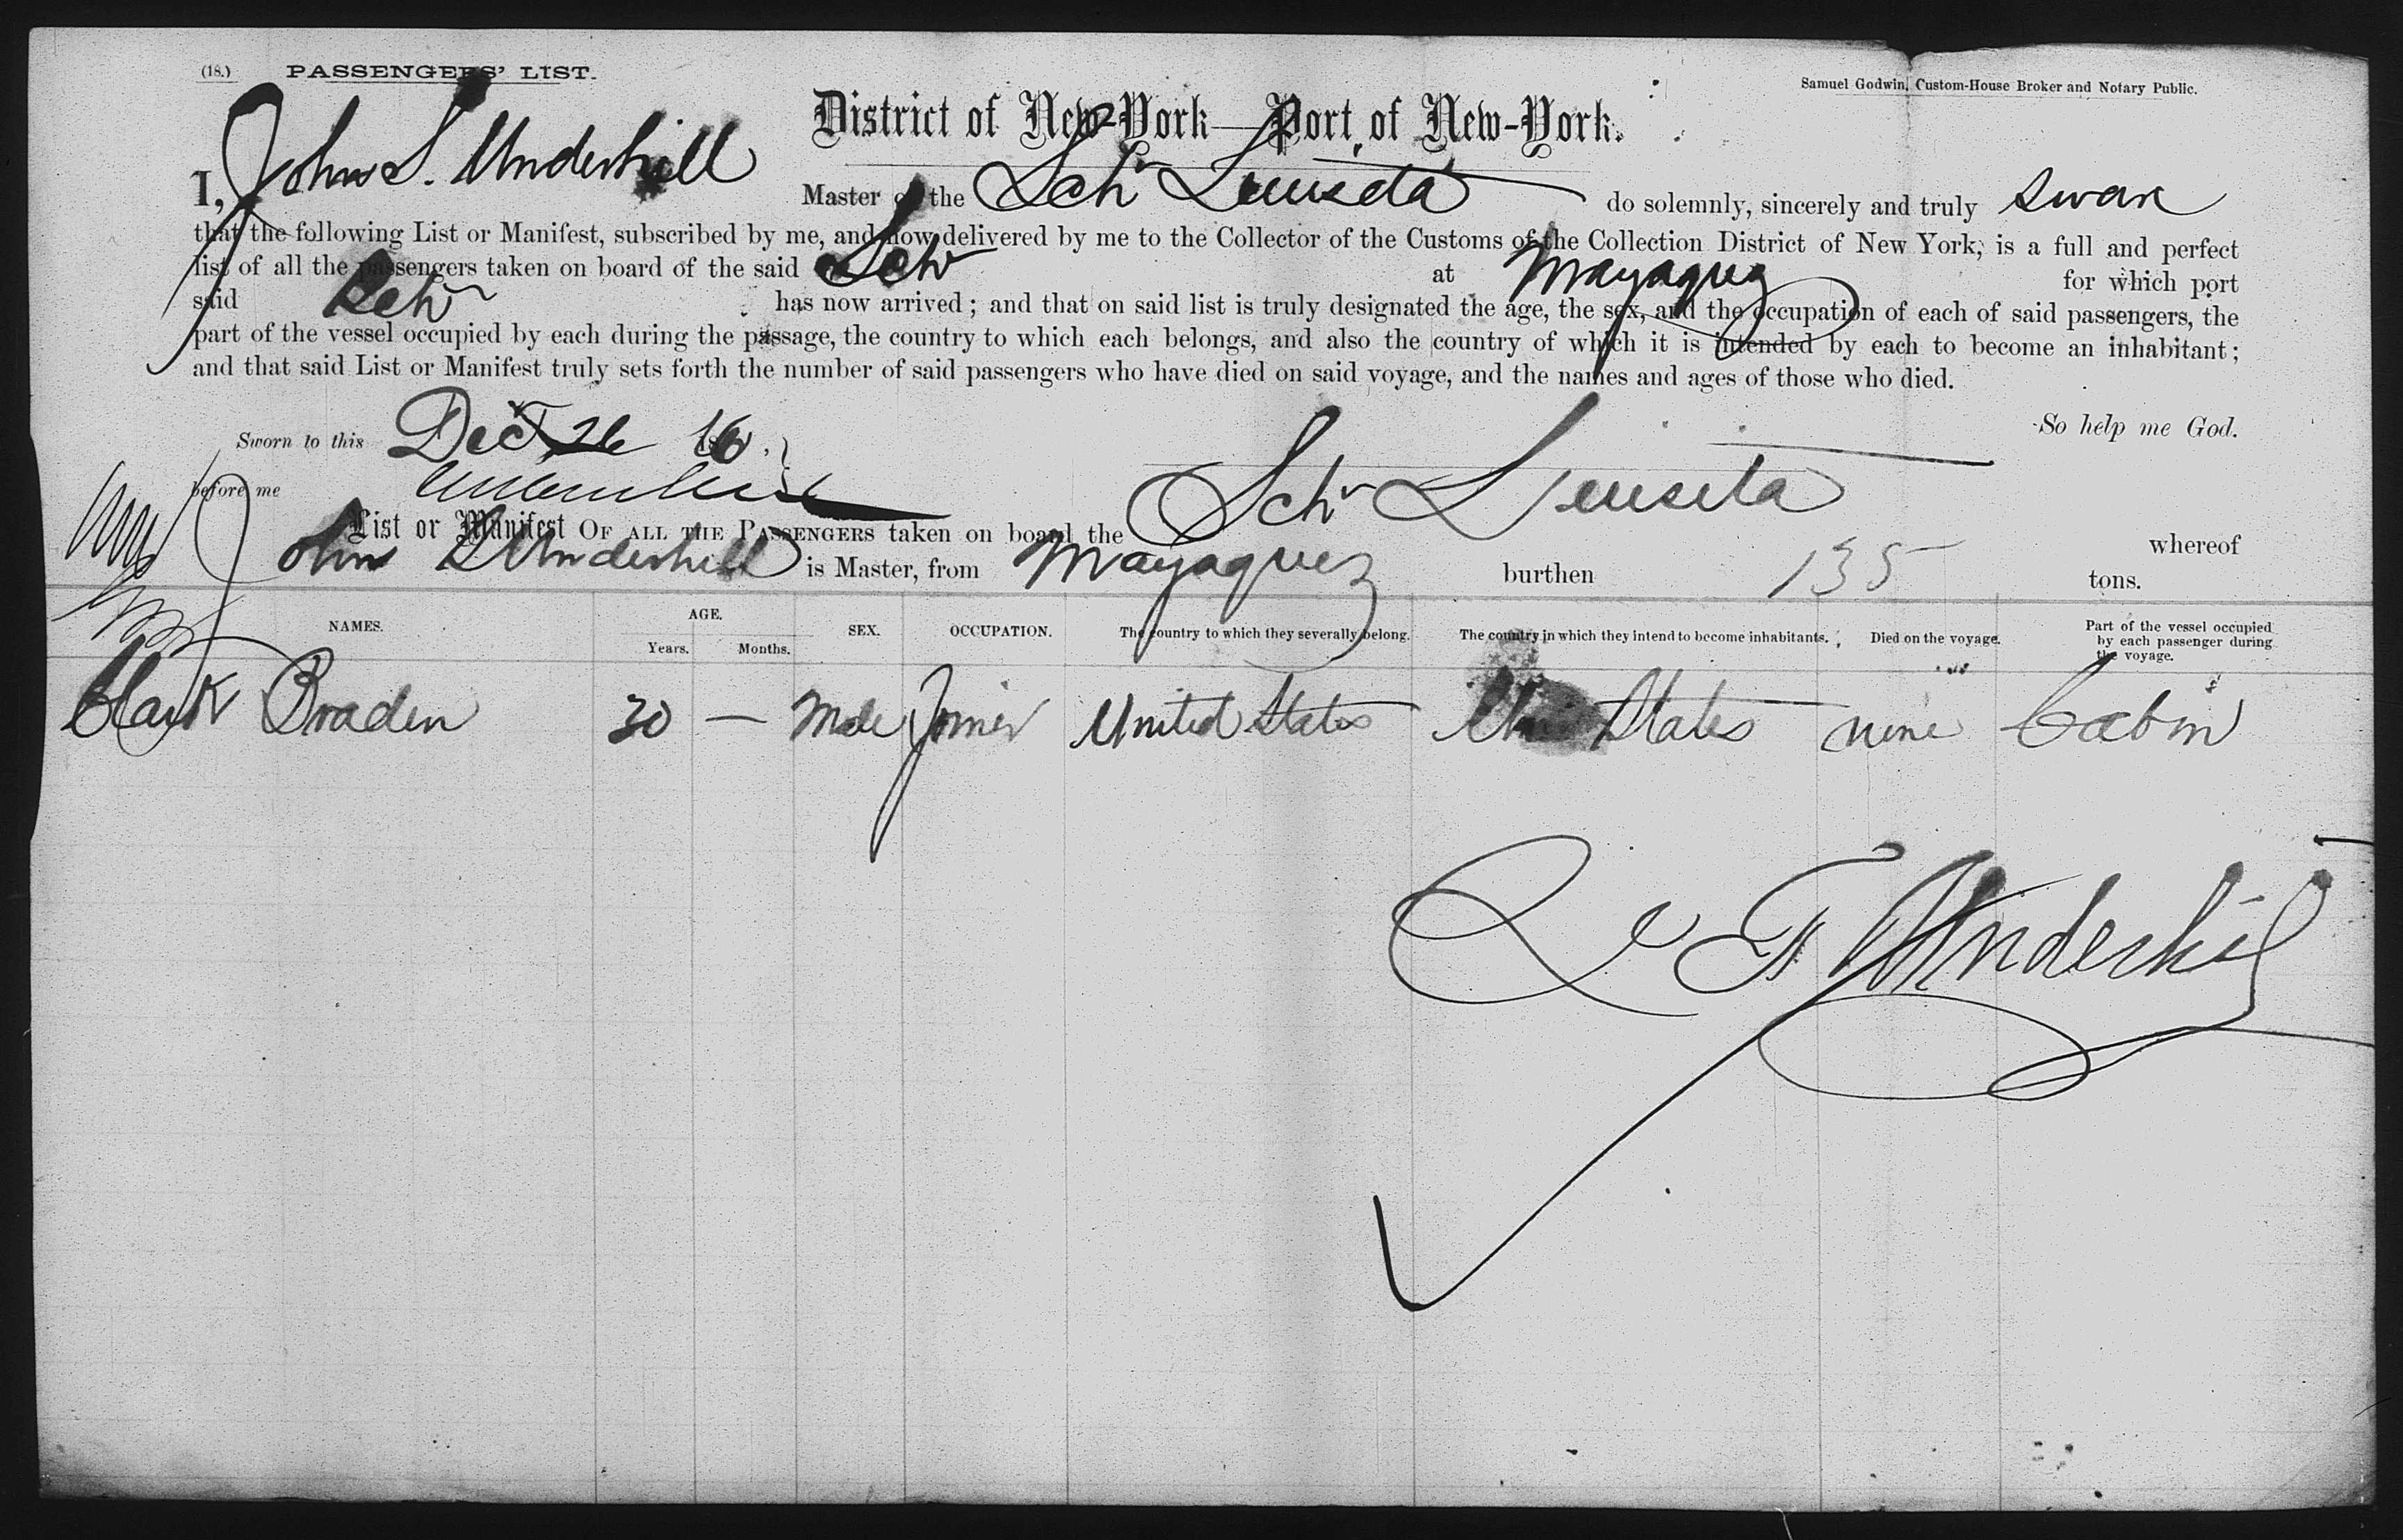 (18.) PASSENGERS' LIST.
Samuel Godwin, Custom-House Broker and Notary Public.
District of New-York—Port of New-York.
I, John S. Underhill Master of the Schr Luisita do solemnly, sincerely and truly swear
that the following List or Manifest, subscribed by me, and now delivered by me to the Collector of the Customs of the Collection District of New York, is a full and perfect
list of all the passengers taken on board of the said Schr at Mayaguez for which port
said Schr has now arrived; and that on said list is truly designated the age, the sex, and the occupation of each of said passengers, the
part of the vessel occupied by each during the passage, the country to which each belongs, and also the country of which it is intended by each to become an inhabitant;
and that said List or Manifest truly sets forth the number of said passengers who have died on said voyage, and the names and ages of those who died.
So help me God.
Sworn to this Dec 26
before me
List or Manifest OF ALL THE PASSENGERS taken on board the Schr Luisita whereof
John S Underhill is Master, from Mayaguez burthen 135 tons.
NAMES. AGE. Years. Months. SEX. OCCUPATION. The country to which they severally belong. The country in which they intend to become inhabitants. Died on the voyage. Part of the vessel occupied by each passenger during the voyage.
Clark Braden 30 — Male Joiner United States States none Cabin
Underhill